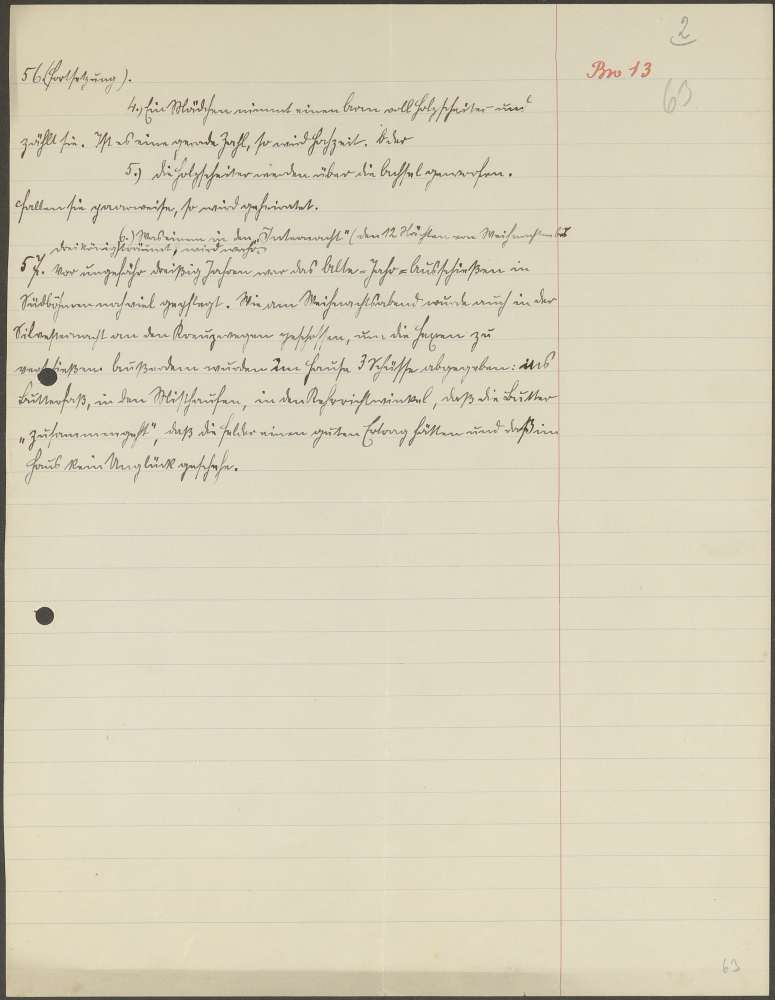 2
Bw 13
63
56 (Fortsetzung).
4.) Ein Mädchen nimmt einen Arm voll Holzscheiter und
zählt sie. Ist es eine gerade Zahl, so wird Hochzeit. Oder
5.) die Holzscheiter werden über die Achsel geworfen.
Fallen sie paarweise, so wird geheiratet.
6.) Was einem in den "Internacht" (den 12 Nächten von Weihnachten bis
Dreikönig) träumt, wird wahr.
57. Vor ungefähr dreißig Jahren war das Alte-Jahr-Ausschießen in
Südböhmen noch viel gepflegt. Wie am Weihnachtsabend wurde auch in der
Silvesternacht an den Kreuzwegen geschossen, um die Hexen zu
verschießen. Außerdem wurden im Hause 3 Schüsse abgegeben: ins
Butterfaß, in den Misthaufen, in den Kehrichtwinkel, daß die Butter
"zusammengeht", daß die Felder einen guten Ertrag hätten und daß im
Haus kein Unglück geschehe.
63